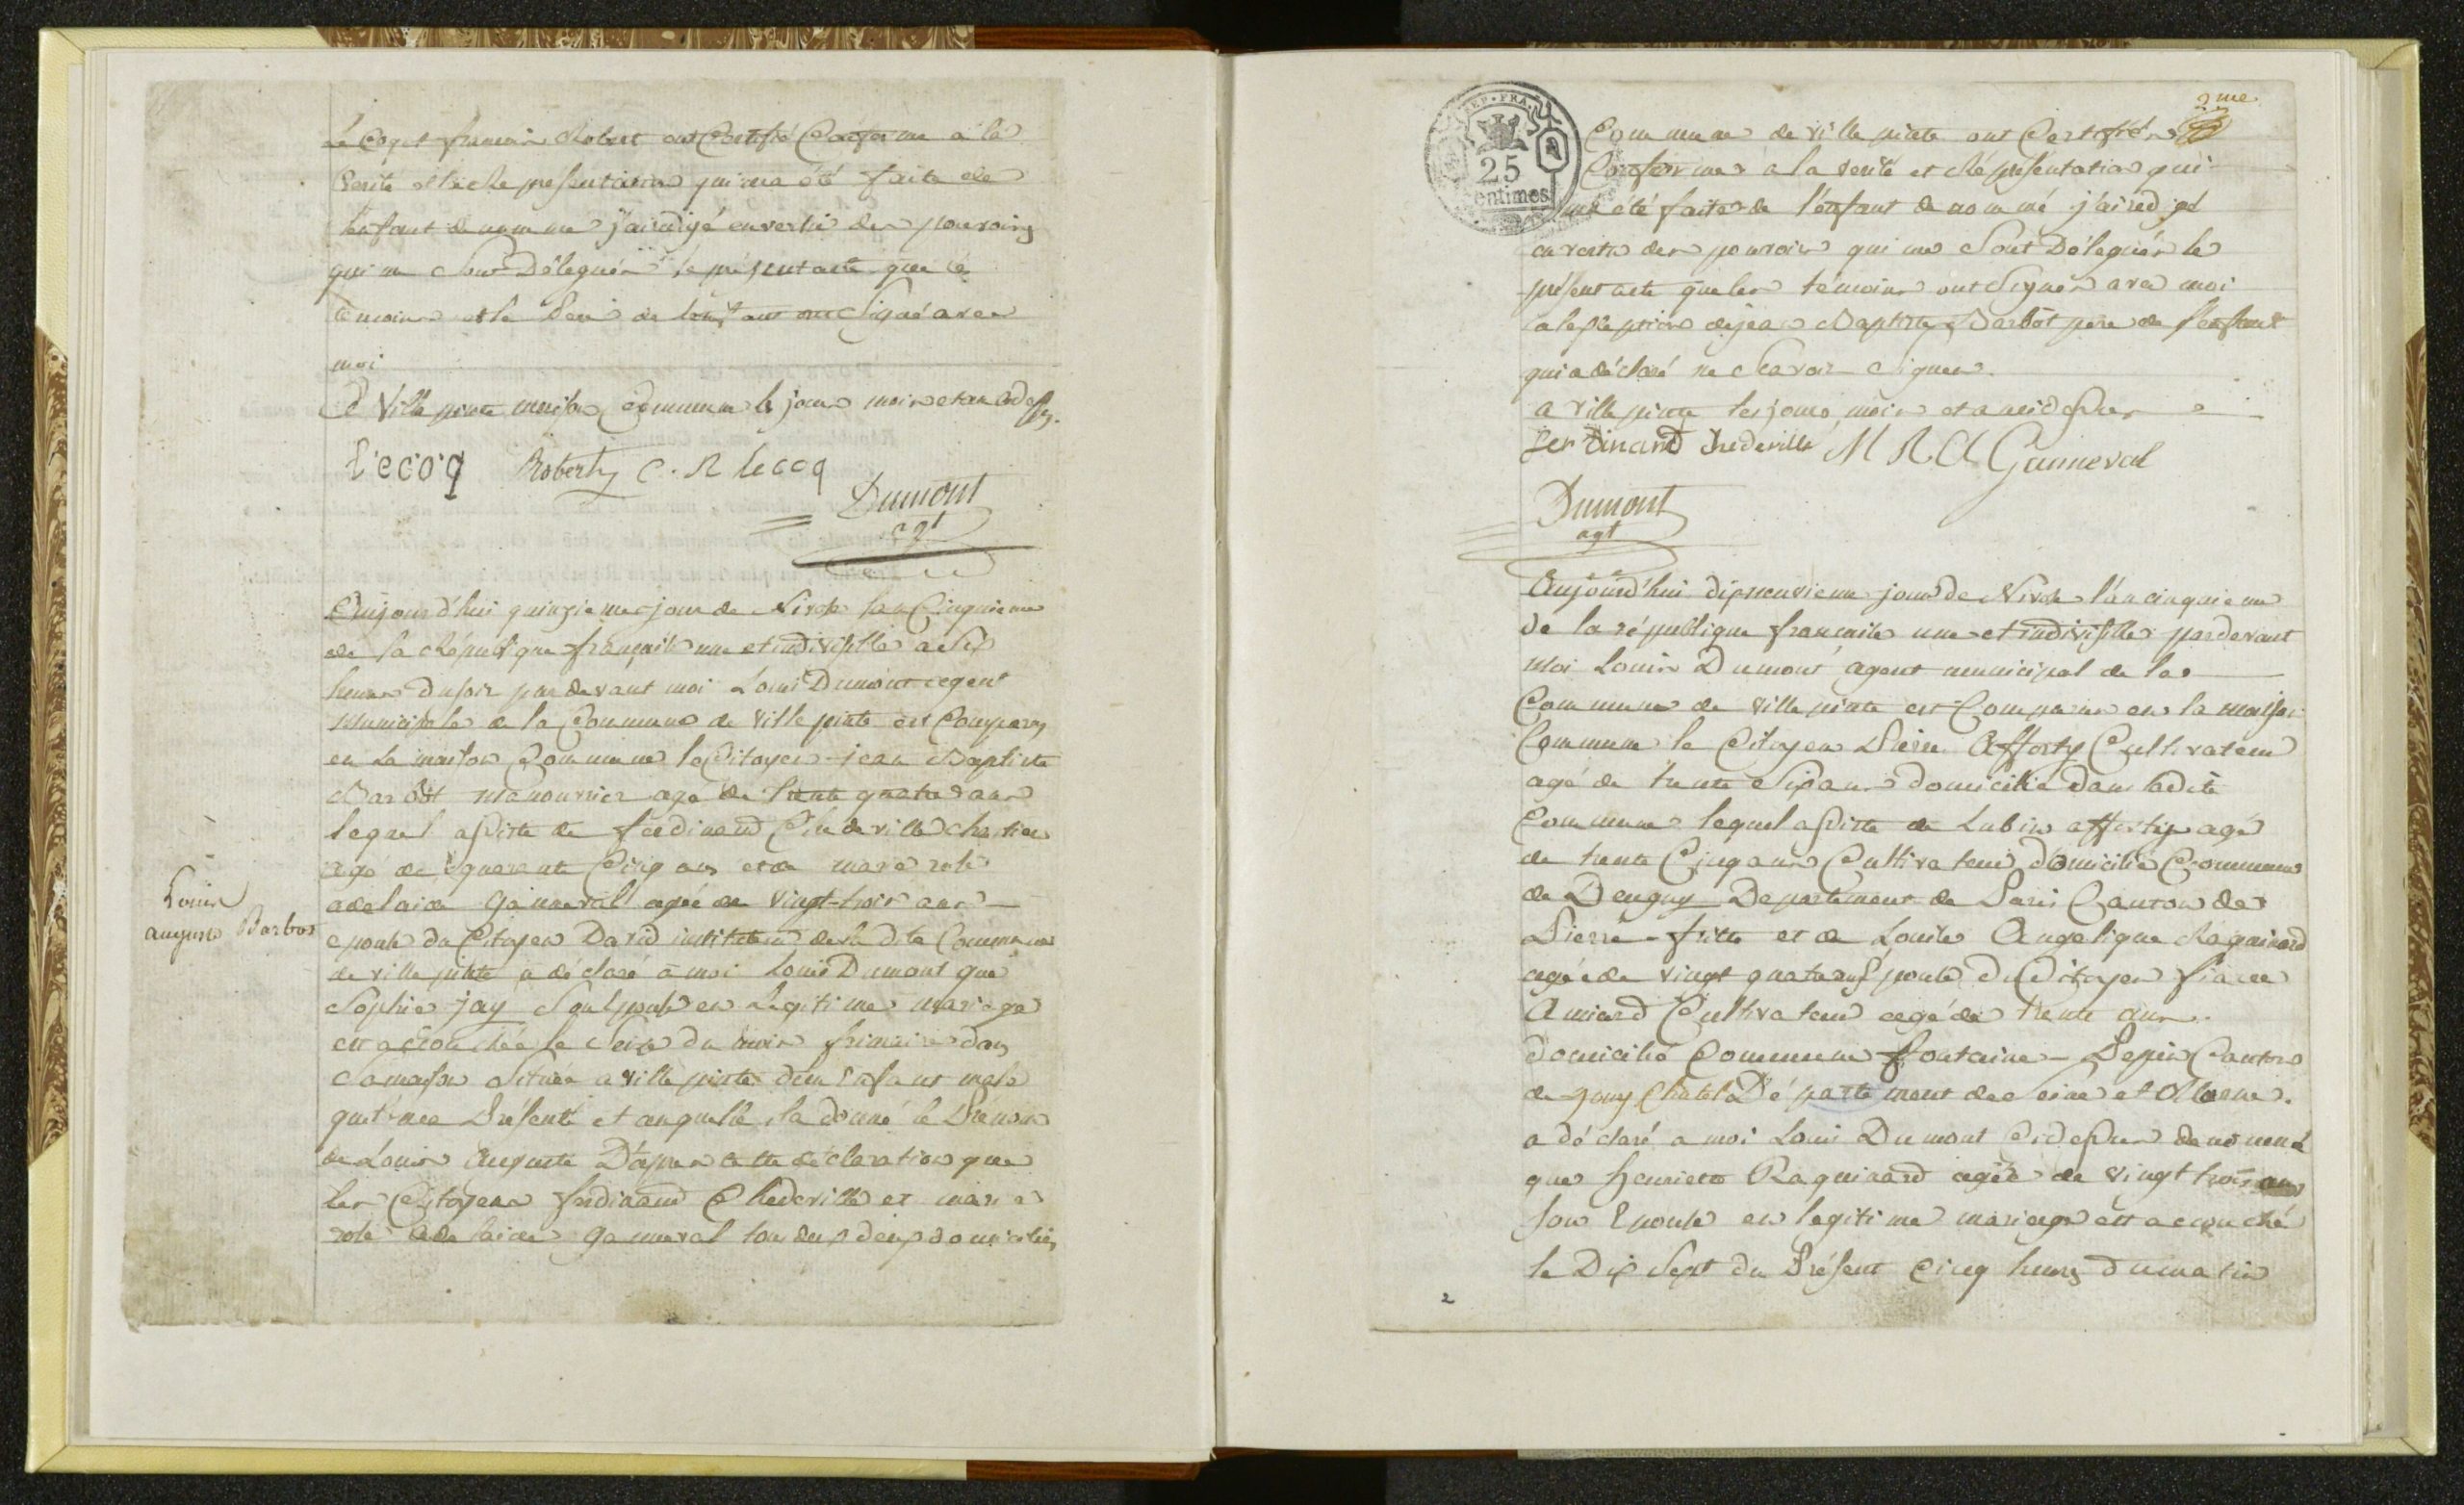 Le Coq et francoin Robert ont Certifié Conforme a la
verité et la Représentation qui ma été faite de
lenfant denommé j'ai redigé envertu des pouvoirs
qui me sont Délegués le présent acte que les
témoins et le Pere de lenfant ont Signé avec
moi
a Villepinte maison Commune le jour mois et an cidessus.
Lecoq Robert C. R lecoq
Dumont
agt
Aujourd'hui quinzieme jour de Nivose lan Cinquieme
de la République française une et indivisible a six
heures du soir par devant moi Louis Dumont agent
municipale de la Commune de Villepinte est Comparu
en la maison Commune le Citoyen jean Baptiste
Barbot manouvrier agé de trente quatre ans
lequel assisté de ferdinand Chedeville charlier
agé de quarente Cinq ans et de marie rose
adelaide Ganneval agée de vingt-trois ans
epouse du Citoyen David instituteur de la dite Commune
de villepinte a déclaré à moi Louis Dumont que
Sophie jay Son Epouse en Legitime mariage
est accouchée le Seize du mois frimaire dans
Sa maison Située a villepinte dun Enfant male
quil mea Présenté et auquelle il a donné le Prénom
de Louis Auguste D'apres cette déclaration que
les Citoyens ferdinand Chedeville et marie
rose adelaide Ganneval tous deux domiciliés
Louis
auguste Barbot
2me
REP. FRA.
25
centimes
Commune de villepinte ont Certifié
Conforme a la verité et Représentation qui
ma été faite de l'enfant denommé j'ai redigé
en vertu des pouvoirs qui me Sont Délegués le
présent acte que les témoins ont Signés avec moi
a lexseption de jean Baptiste Barbot pere de l'enfant
qui a déclaré ne Scavoir Signer
a villepinte les jours mois et an cidessus
ferdinand chedeville M R A Ganneval
Dumont
agt
Aujourd'hui dixneuvieme jour de Nivose l'an cinquieme
de la république française une et indivisible pardevant
moi Louis Dumont agent municipal de la
Commune de villepinte est Comparu en la maison
Commune le Citoyen Pierre Afforty Cultivateur
agé de trente Six ans domicilié dans ladite
Commune lequel assisté de Lubin afforty agé
de trente Cinq ans Cultivateur domicilié Commune
de Deugny Departement de Paris Canton de
Pierre-fitte et de Louise Angelique Raquinard
agée de vingt quatre ans Epouse du Citoyen fiacre
Amiard Cultivateur agé de trente ans
domicilié Commune fontaine - Lepin Canton
de jouy Chatel Département de Seine et Marne.
a déclaré a moi Louis Dumont Cidessus denommé
que henriette Raquinard agée de vingt trois ans
son Epouse en legitime mariage est accouché
le Dix Sept du Présent Cinq heures du matin
2